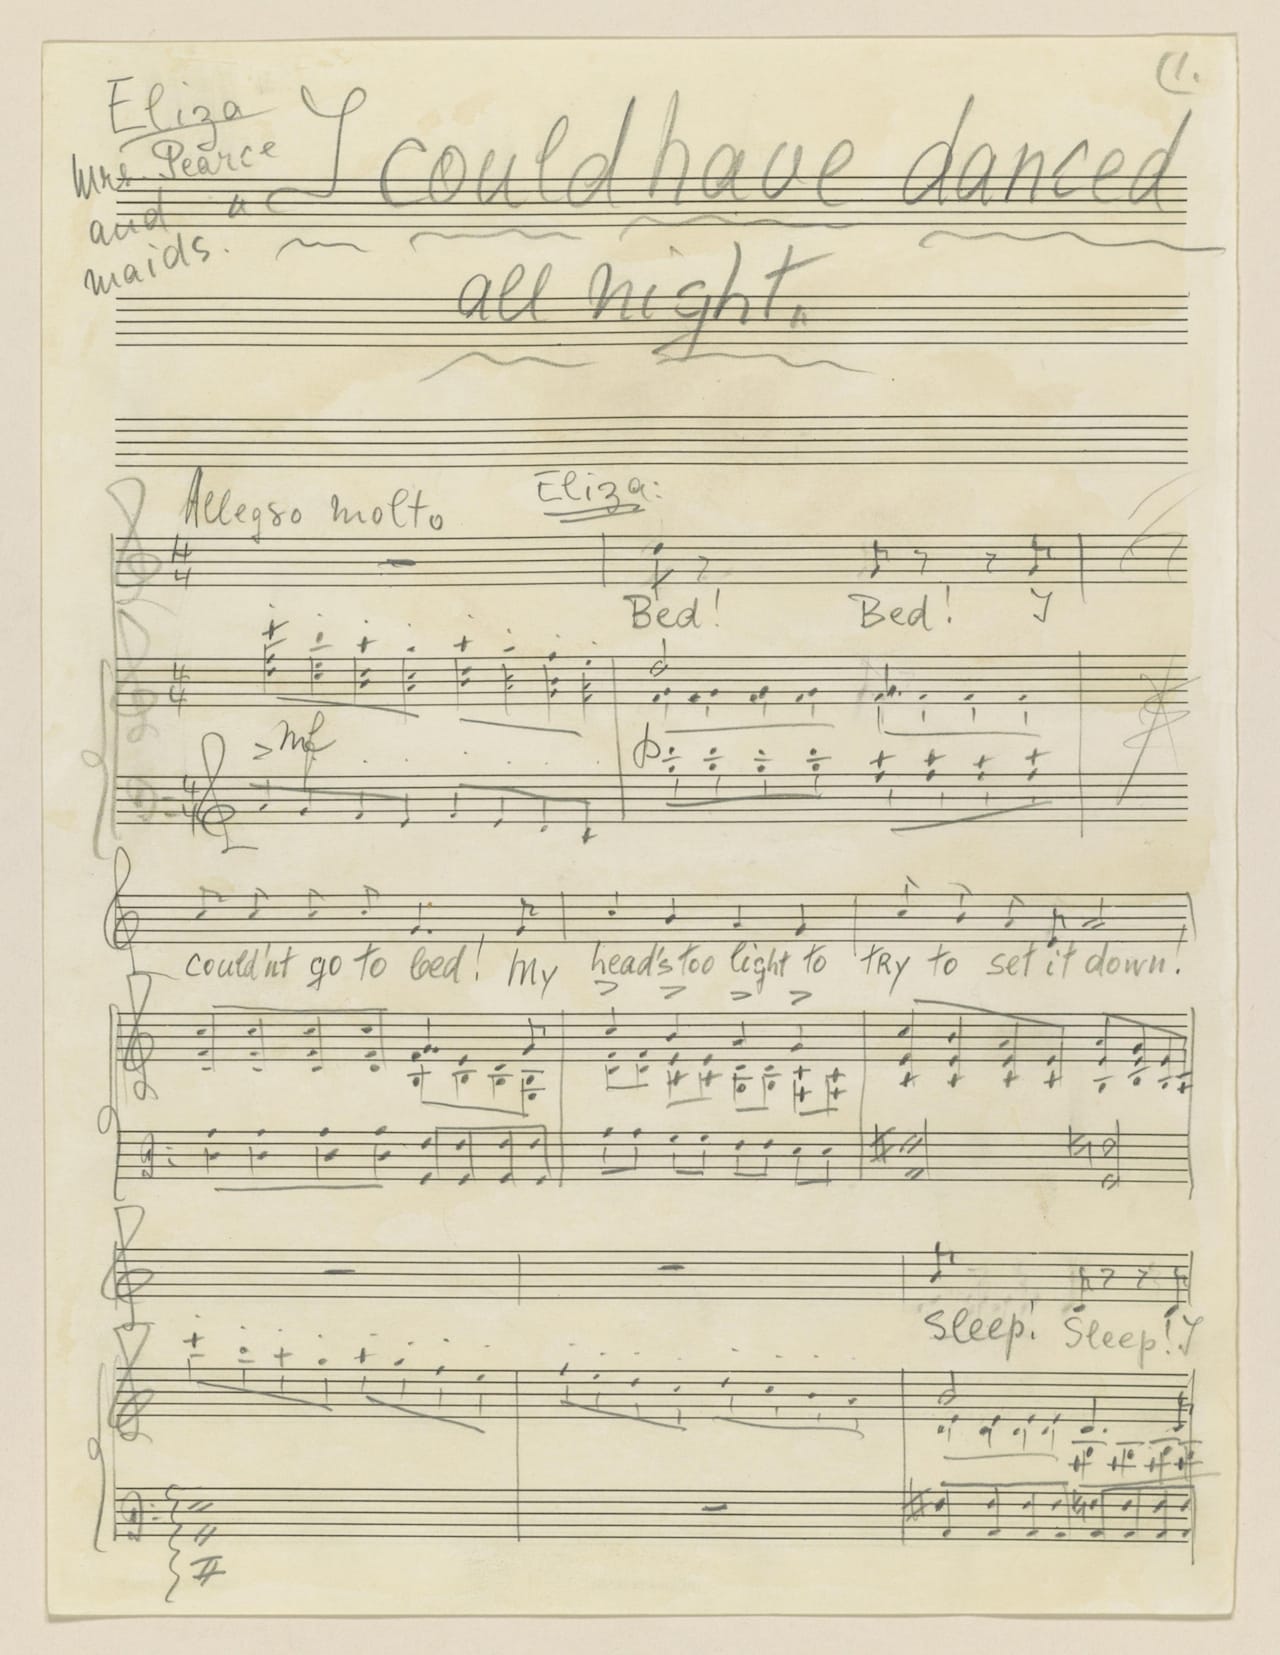 (1.
Eliza
Mrs. Pearce
and
maids.
"I could have danced
all night."
Allegro molto
Eliza:
4/4
Bed! Bed! I
4/4
mf
p
4/4
could'nt go to bed! My head's too light to try to set it down!
Sleep! Sleep! I